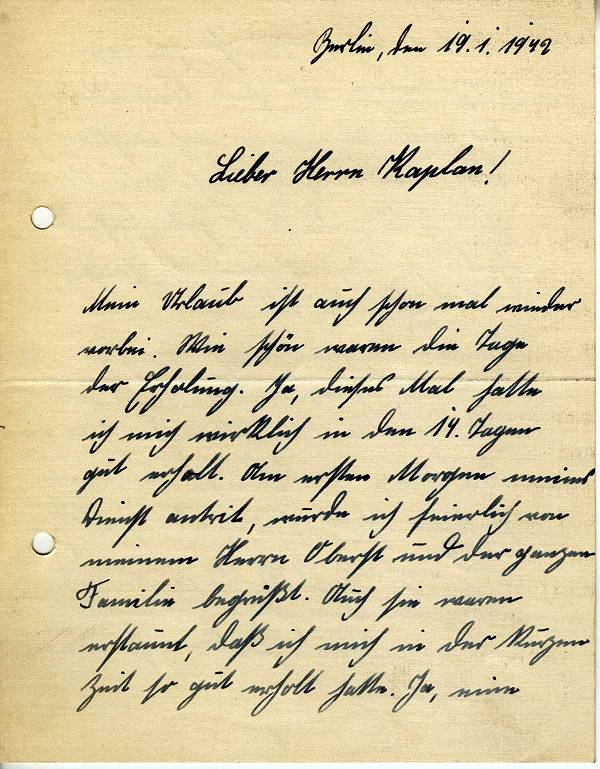 Berlin, den 19.1.1942
Lieber Herrn Kaplan!
Mein Urlaub ist auch schon mal wieder
vorbei. Wie schön waren die Tage
der Erholung. Ja, dieses Mal hatte
ich mich wirklich in den 14. Tagen
gut erholt. Am ersten Morgen meines
Dienst antrit, wurde ich feierlich von
meinem Herrn Oberst und der ganzen
Familie begrüßt. Auch sie waren
erstaunt, daß ich mich in der kurzen
Zeit so gut erholt hatte. Ja, eine